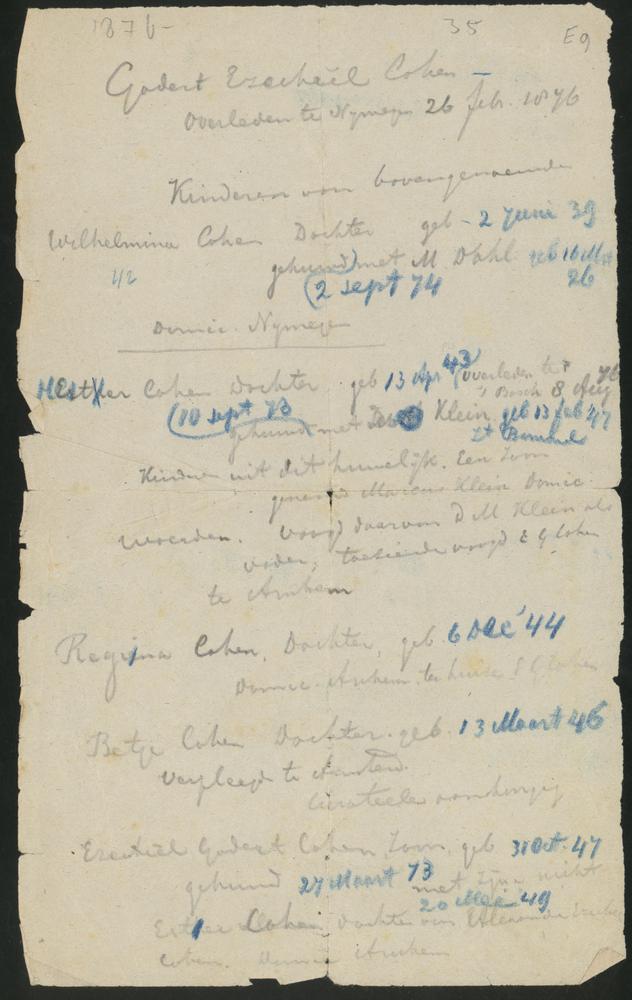 1876- 35 E9
Godert Ezechiël Cohen -
Overleden te Nymegen 26 feb. 1876
Kinderen van bovengenoemde
Wilhelmina Cohen Dochter geb - 2 Juni 39
gehuwd met M Dahl geb 16
42 (2 sept 74 26
Domic. Nymegen
HEsther Cohen Dochter geb 13 Apr 43 (overleden te
's Bosch 8 Aug 76
(10 sept 73
gehuwd met Klein geb 13 feb 47
Zt Bommel
Kinderen uit dit huwelijk. Een Zoon
genaamd Marcus Klein Domic
woerden. Voogd daarvan D M Klein als
vader, toeziende voogd E G Cohen
te Arnhem
Regina Cohen, Dochter, geb 6 Dec 44
Domic. Arnhem ten huize E G Cohen
Betje Cohen Dochter. geb. 13 Maart 46
Verpleegd te
Curateele aanhangig
Ezechiel Godert Cohen, Zoon, geb 31 Oct. 47
gehuwd 27 Maart 73 met zijne nicht
20 Mei 49
Esther Cohen dochter van Alexander Ezechiel
Cohen. Domic Arnhem